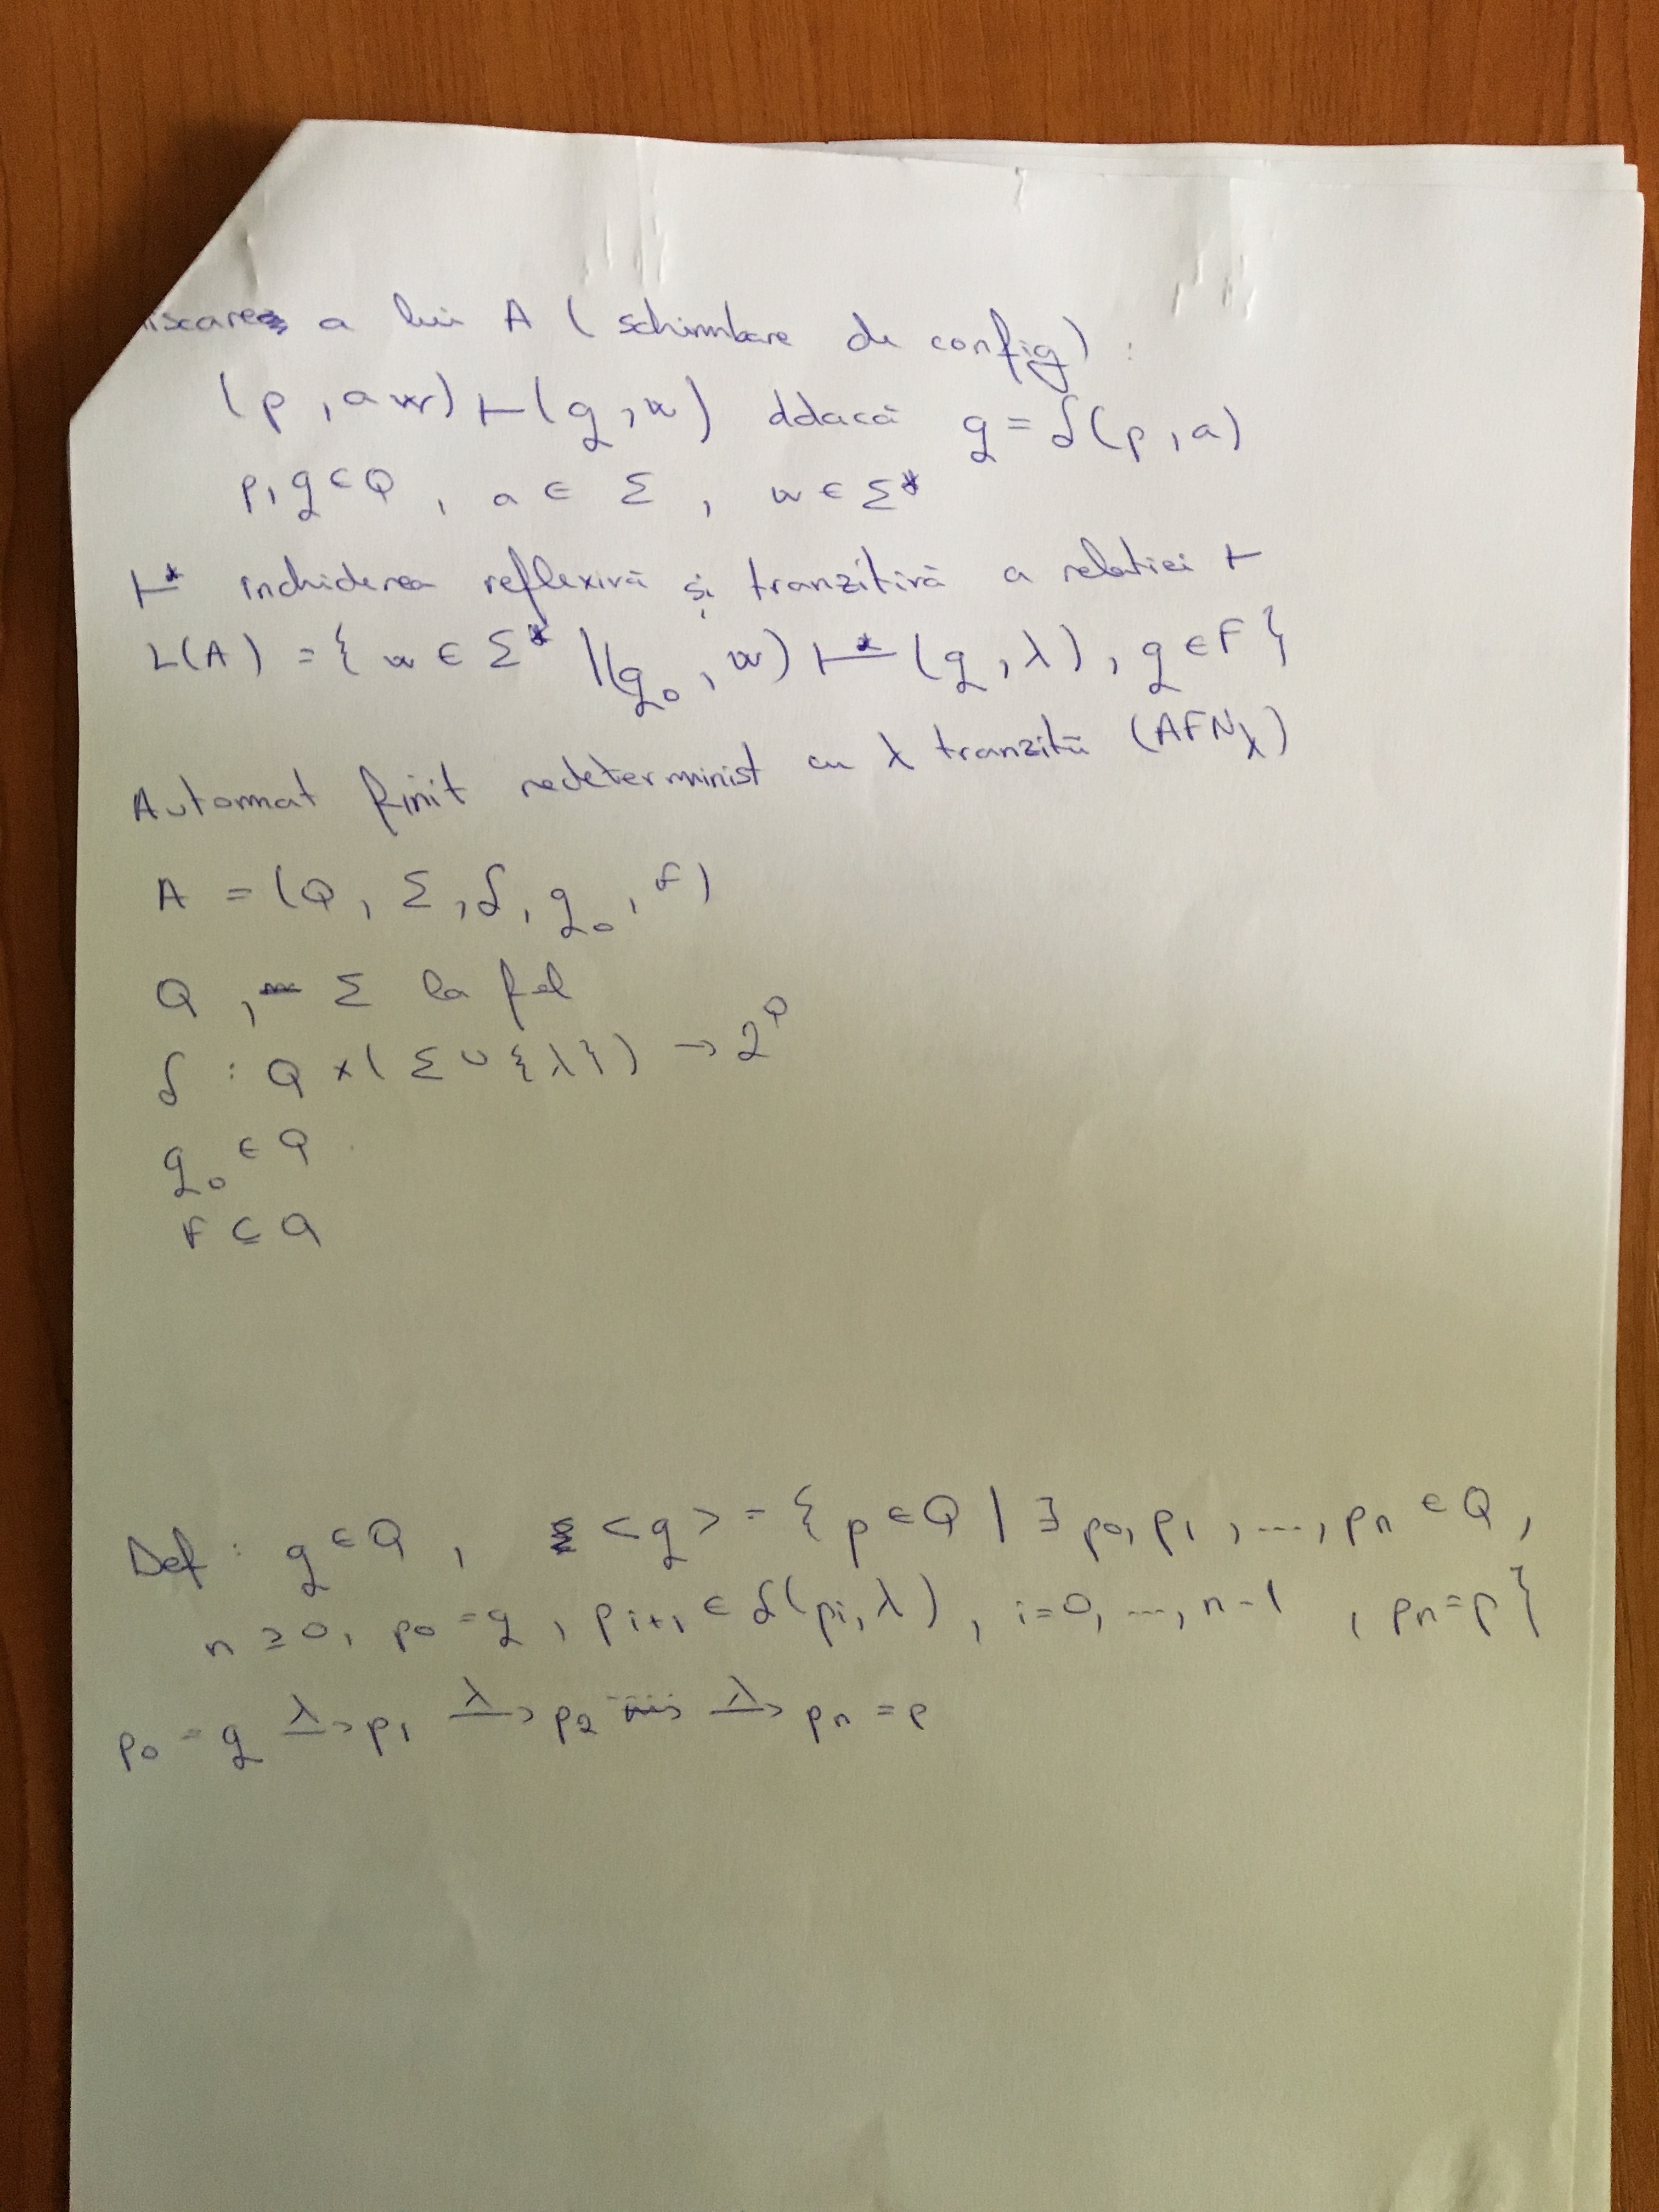 iscare a lui A (schimbare de config) :
(p, aw) ⊢ (q, w) ddacă q = δ(p, a)
p, q ∈ Q, a ∈ Σ, w ∈ Σ*
⊢* închiderea reflexivă și tranzitivă a relatiei ⊢
L(A) = { w ∈ Σ* | (q₀, w) ⊢* (q, λ), q ∈ F }
Automat finit nedeterminist cu λ tranziții (AFNλ)
A = (Q, Σ, δ, q₀, F)
Q, Σ la fel
δ : Q × (Σ ∪ {λ}) → 2^Q
q₀ ∈ Q
F ⊆ Q
Def : q ∈ Q, <q> = { p ∈ Q | ∃ p₀, p₁, ..., pₙ ∈ Q,
n ≥ 0, p₀ = q, pᵢ₊₁ ∈ δ(pᵢ, λ), i = 0, ..., n-1, pₙ = p}
p₀ = q —λ→ p₁ —λ→ p₂ ..... —λ→ pₙ = p